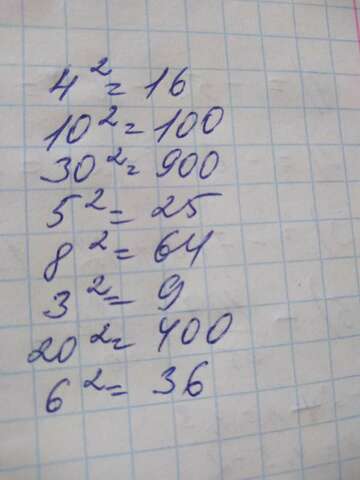 4² = 16
10² = 100
30² = 900
5² = 25
8² = 64
3² = 9
20² = 400
6² = 36